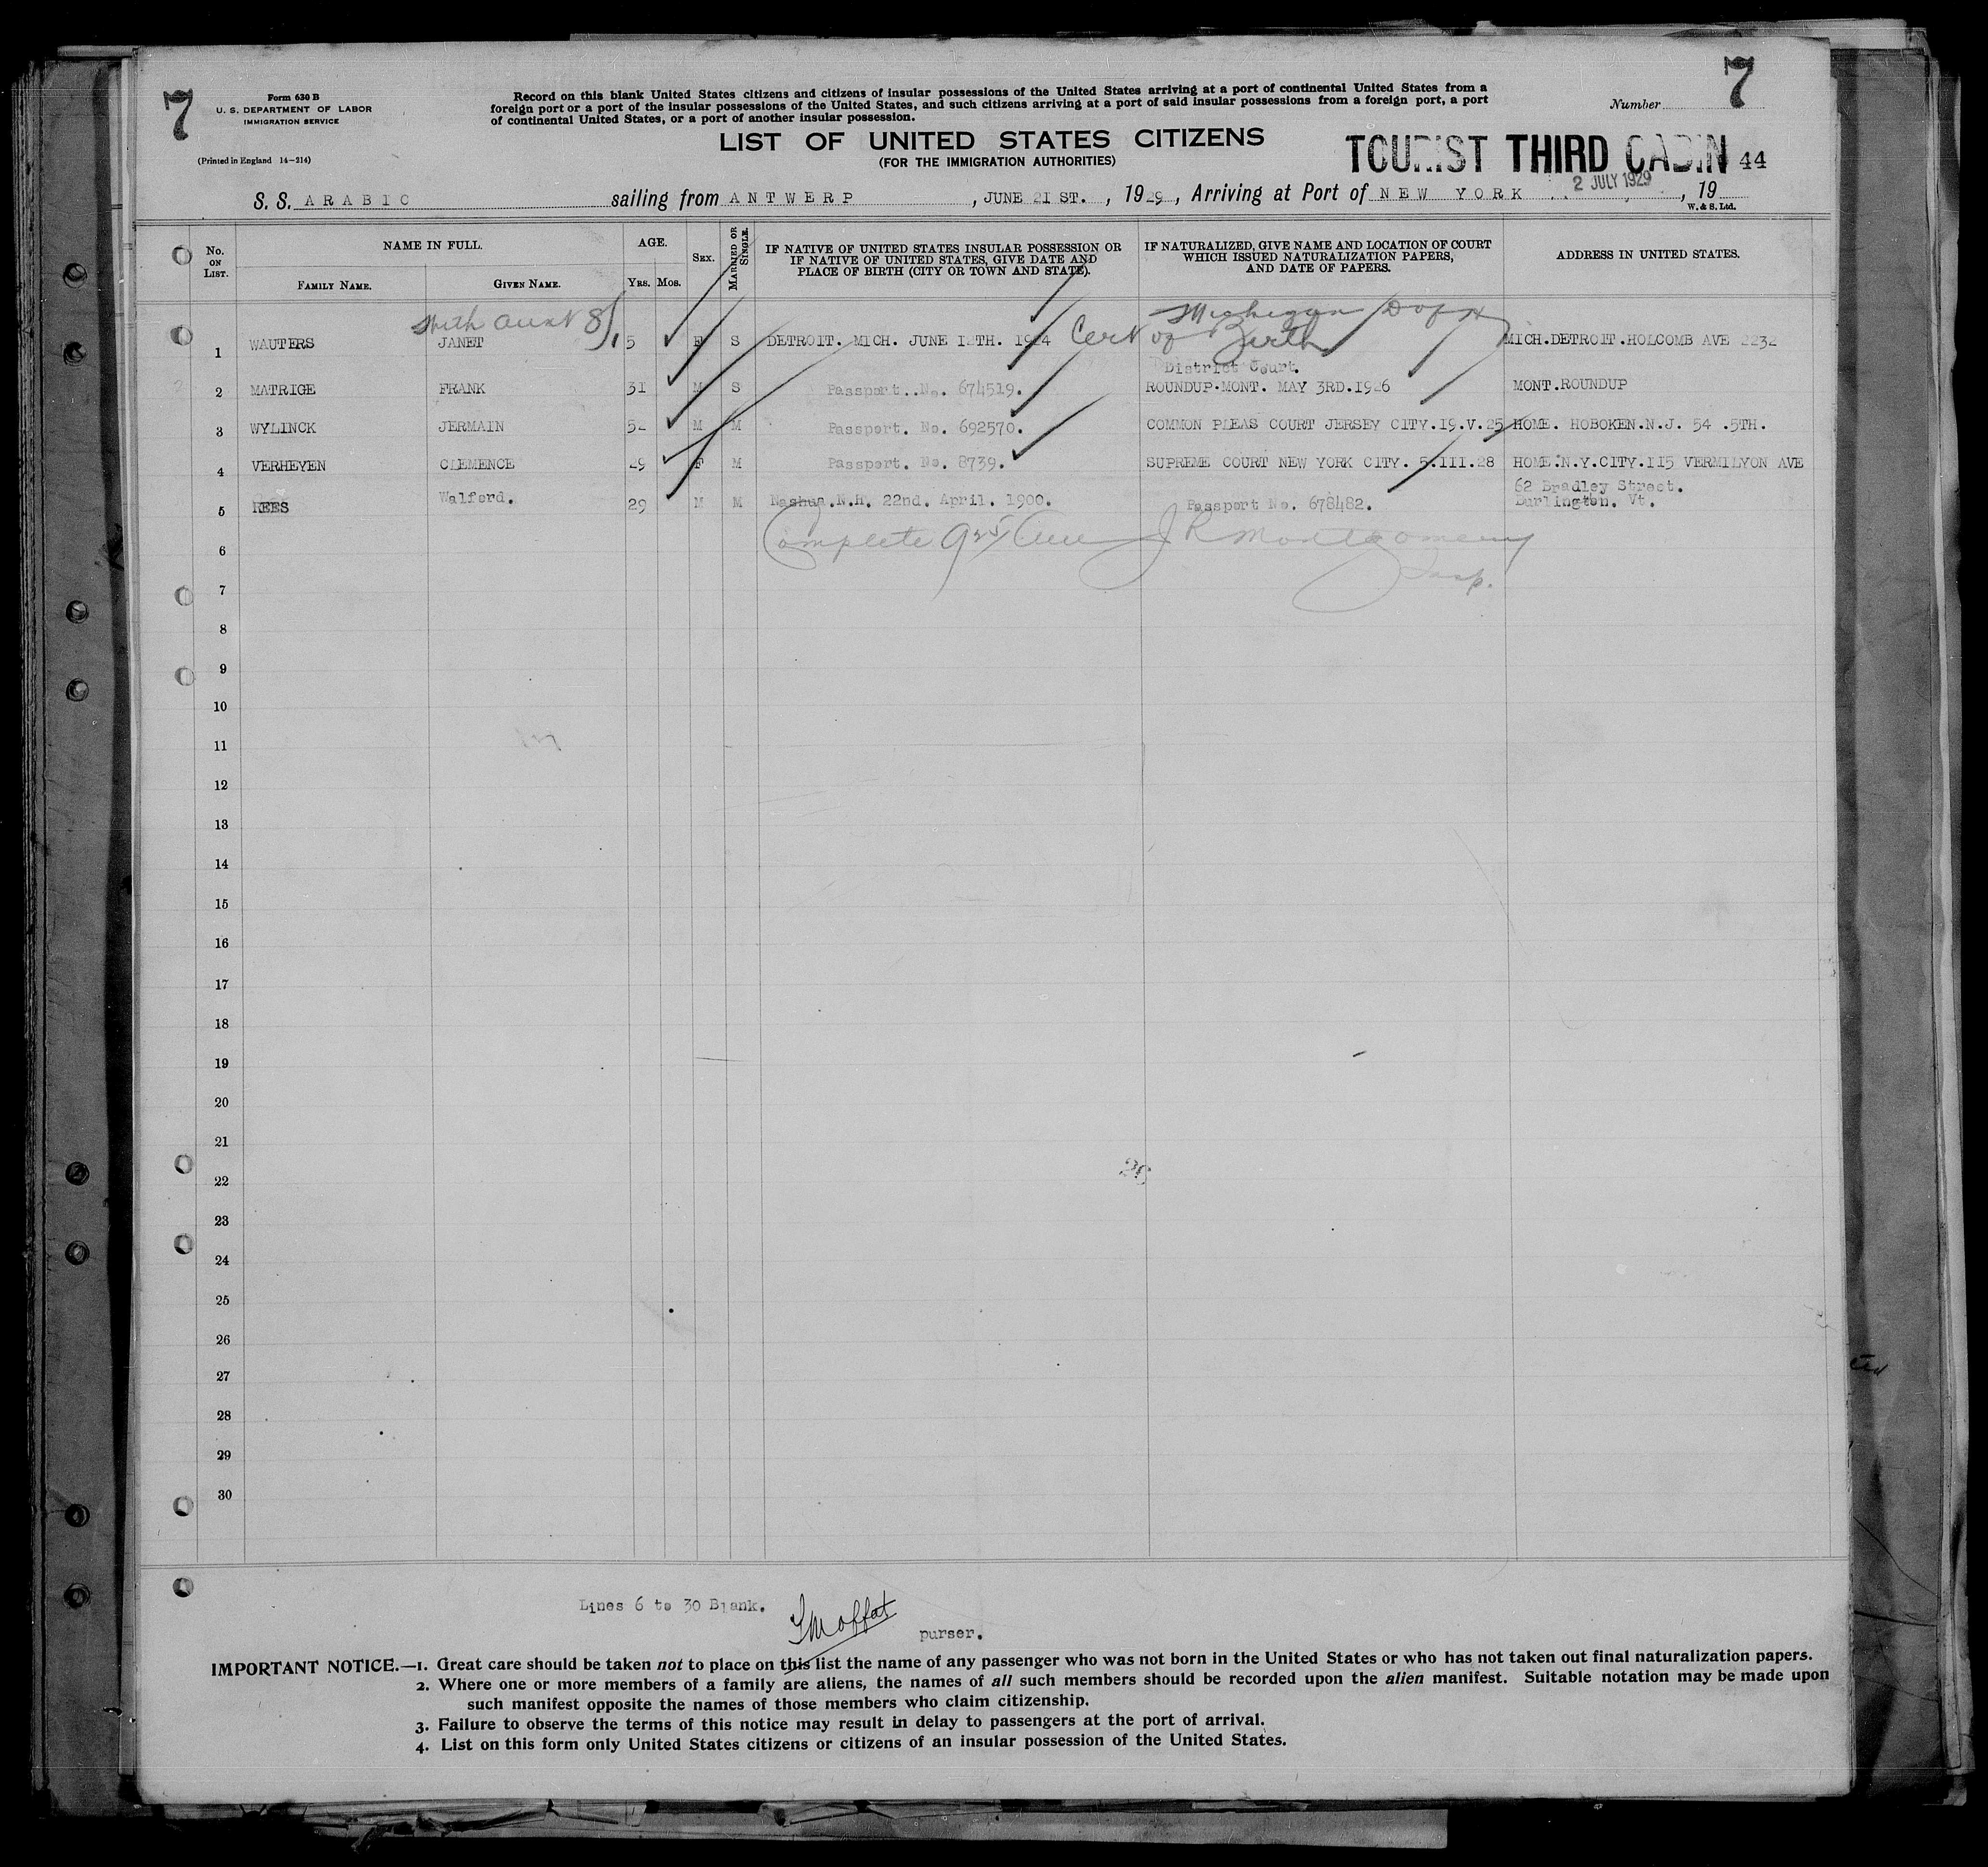 7
7
Form 630 B
U. S. DEPARTMENT OF LABOR
IMMIGRATION SERVICE
(Printed in England 14—214)
Record on this blank United States citizens and citizens of insular possessions of the United States arriving at a port of continental United States from a
foreign port or a port of the insular possessions of the United States, and such citizens arriving at a port of said insular possessions from a foreign port, a port
of continental United States, or a port of another insular possession.
Number
LIST OF UNITED STATES CITIZENS
(FOR THE IMMIGRATION AUTHORITIES)
TOURIST THIRD CABIN 44
2 JULY 1929
S. S. ARABIC sailing from ANTWERP, JUNE 21 ST., 1929, Arriving at Port of NEW YORK, 19
W. & S. Ltd.
No. ON LIST. NAME IN FULL. FAMILY NAME. GIVEN NAME. AGE. YRS. MOS. SEX. MARRIED OR SINGLE. IF NATIVE OF UNITED STATES INSULAR POSSESSION OR IF NATIVE OF UNITED STATES, GIVE DATE AND PLACE OF BIRTH (CITY OR TOWN AND STATE). IF NATURALIZED, GIVE NAME AND LOCATION OF COURT WHICH ISSUED NATURALIZATION PAPERS, AND DATE OF PAPERS. ADDRESS IN UNITED STATES.
With aunt 8/1 Michigan
1 WAUTERS JANET 5 F S DETROIT. MICH. JUNE 12TH. 1924 Cert of Birth MICH.DETROIT.HOLCOMB AVE 2232
District Court.
2 MATRIGE FRANK 31 M S Passport..No. 674519. ROUNDUP.MONT. MAY 3RD.1926 MONT.ROUNDUP
3 WYLINCK JERMAIN 52 M M Passport. No. 692570. COMMON PLEAS COURT JERSEY CITY.19.V.25 HOME. HOBOKEN.N.J. 54 .5TH.
4 VERHEYEN CLEMENCE 29 F M Passport. No. 8739. SUPREME COURT NEW YORK CITY. 5.III.28 HOME.N.Y.CITY.II5 VERMILYON AVE
62 Bradley Street.
5 REES Walford. 29 M M Nashua.N.H. 22nd. April. 1900. Passport No. 678482. Burlington. Vt.
Complete J R Montgomery
Insp.
6
7
8
9
10
11
12
13
14
15
16
17
18
19
20
21
22
23
24
25
26
27
28
29
30
Lines 6 to 30 Blank.
Moffat
purser.
IMPORTANT NOTICE.—1. Great care should be taken not to place on this list the name of any passenger who was not born in the United States or who has not taken out final naturalization papers.
2. Where one or more members of a family are aliens, the names of all such members should be recorded upon the alien manifest. Suitable notation may be made upon
such manifest opposite the names of those members who claim citizenship.
3. Failure to observe the terms of this notice may result in delay to passengers at the port of arrival.
4. List on this form only United States citizens or citizens of an insular possession of the United States.